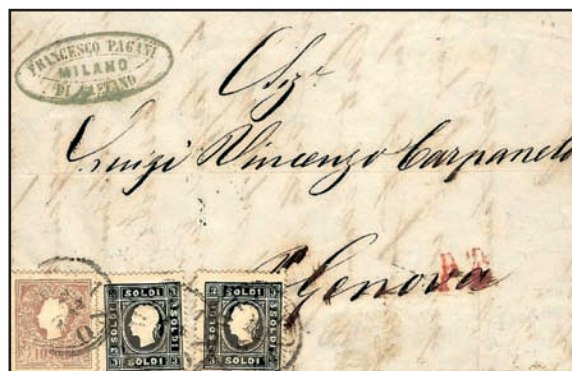 FRANCESCO PAGANI
MILANO
DI GAETANO
Sigr
Luigi Vincenzo Carpaneto
Genova
10 SOLDI
3 SOLDI 3
SOLDI
SOLDI
3 SOLDI 3
3 SOLDI 3
SOLDI
SOLDI
3 SOLDI 3